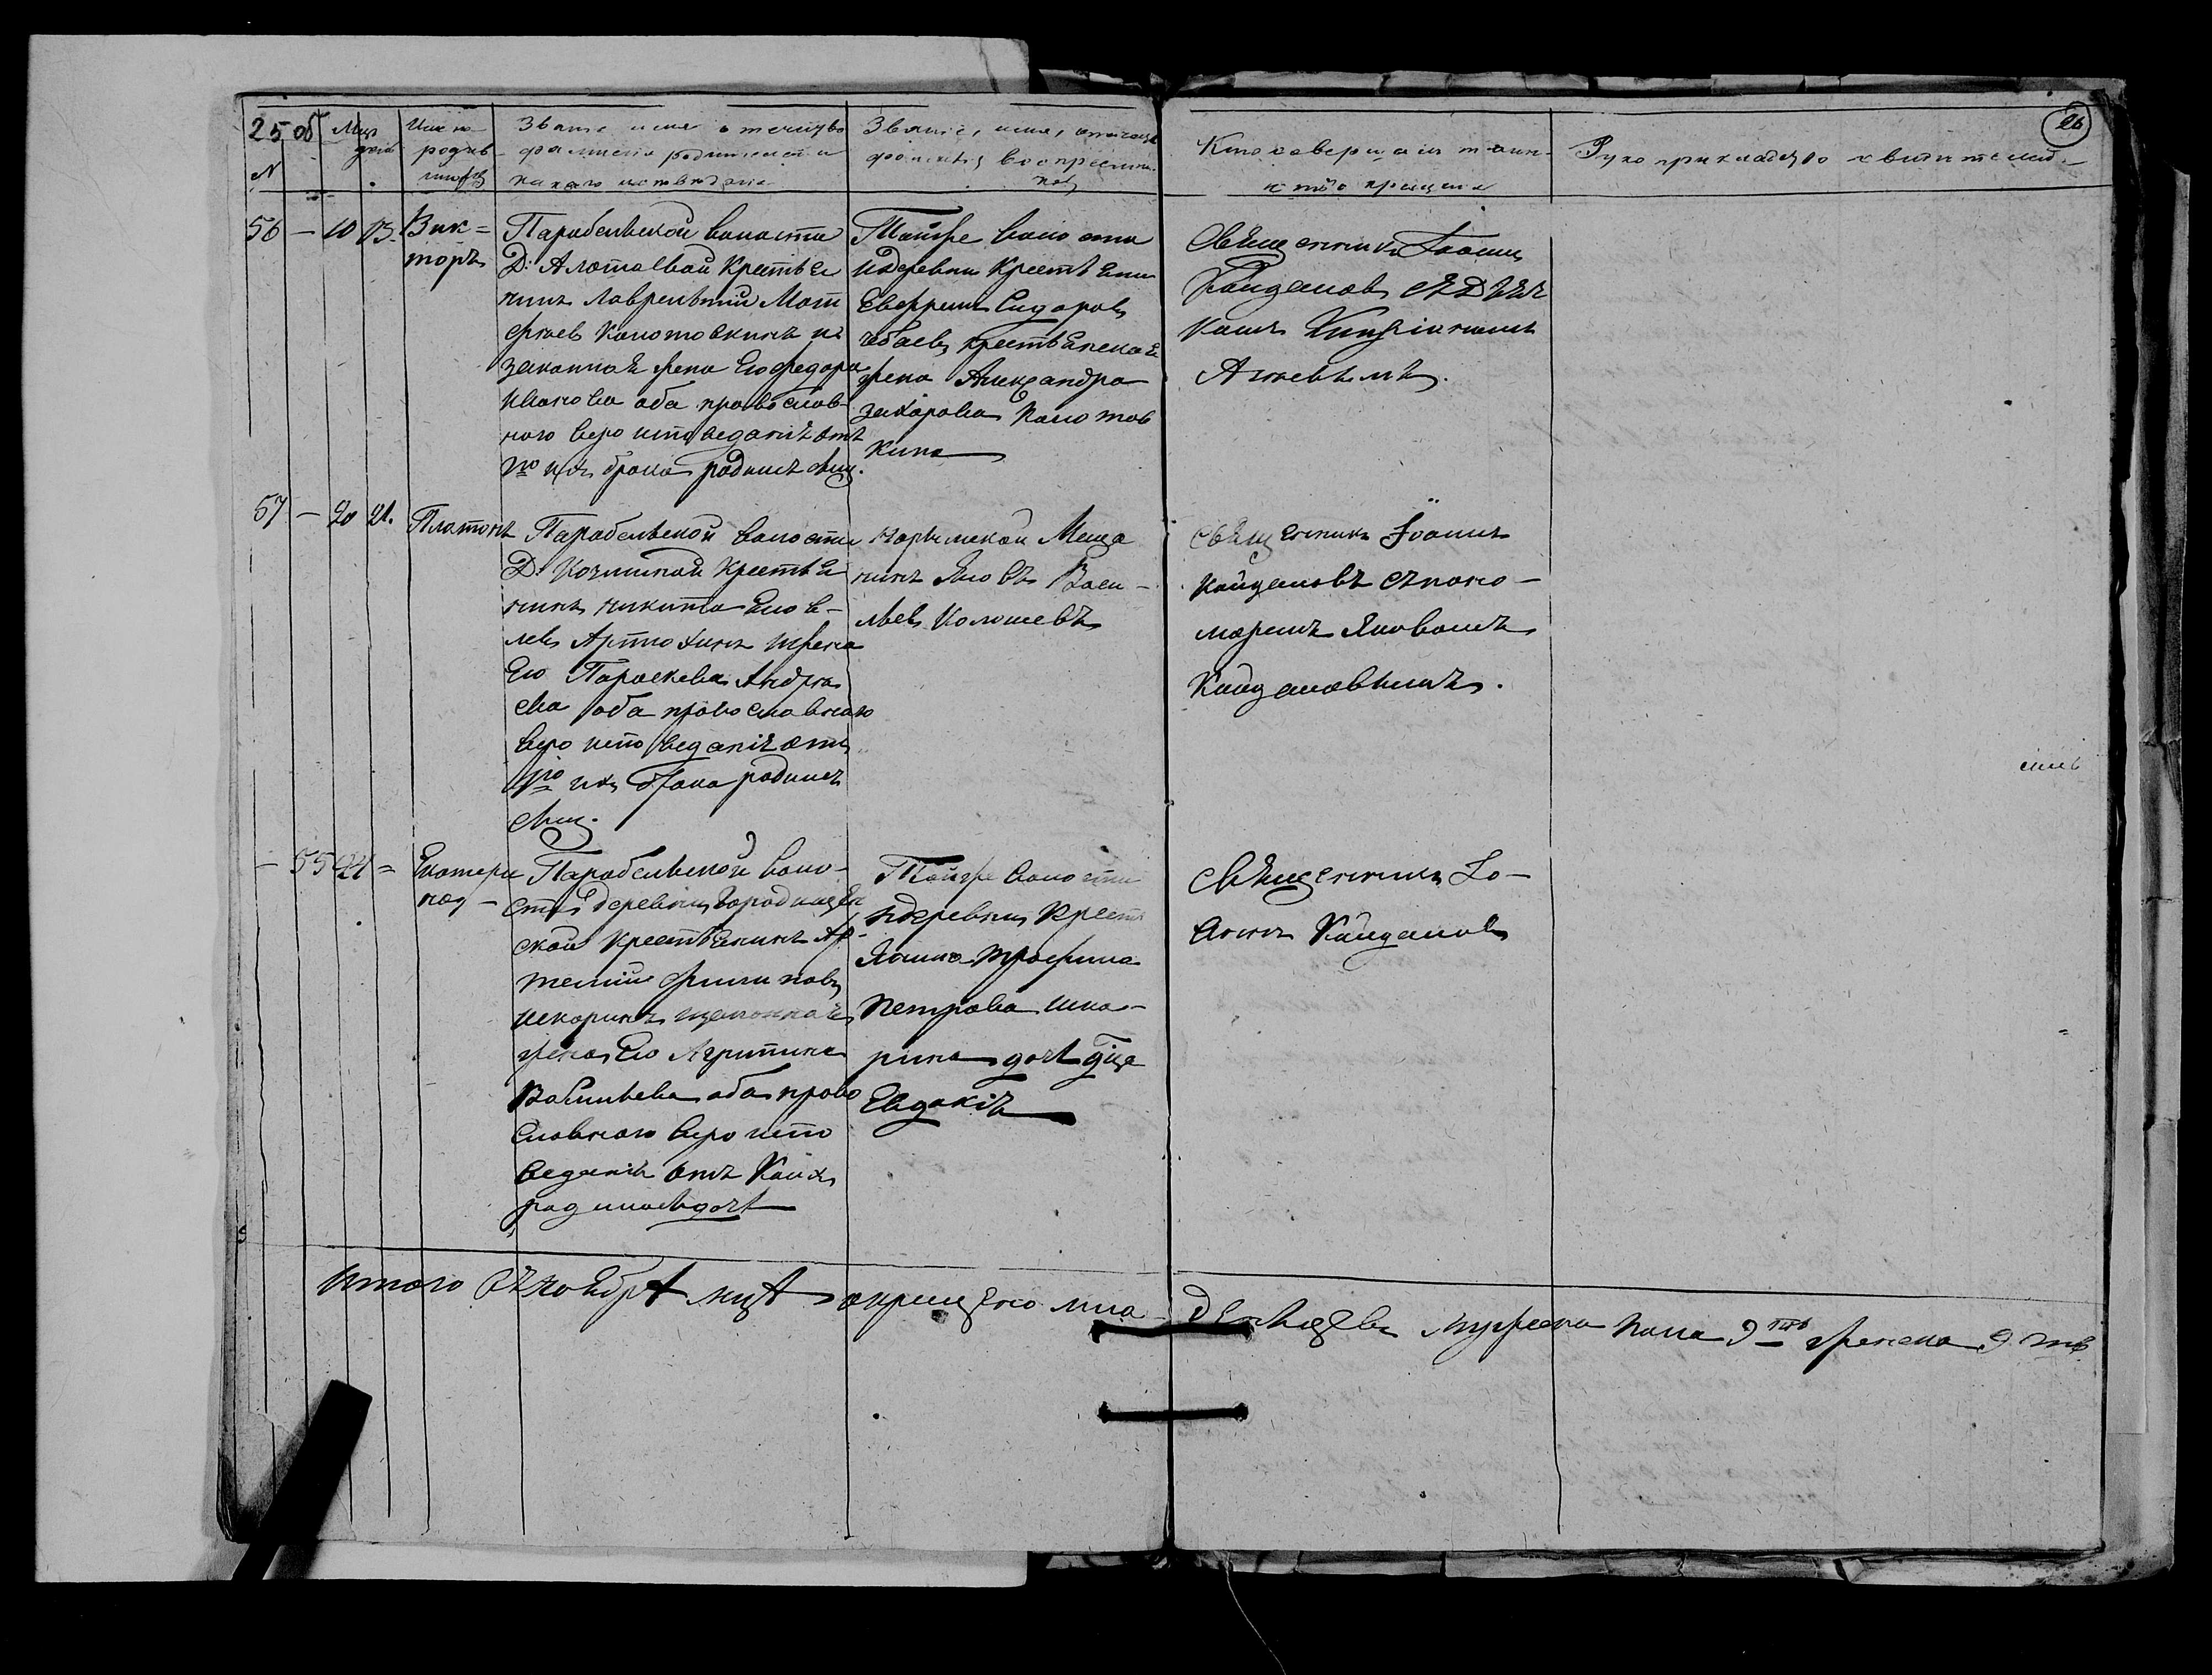 25 об
№
Мцъ
день
Имена
родив
шихся
Званіе имя отчество
фамилія родителей и
какого исповеданія
Званіе, имя, отчество
фамилія восприемни
ковъ
Кто совершалъ таин-
ство крещенія
Рукоприкладство свидетелей
26
56 — 10 13. Вик=
торъ
Парабельской волости
Д: Алотаевой Крестья
нинъ Лаврентий Мат
феевъ Колотовкинъ и
законная жена Его федора
Иванова оба православ-
ного вероисповеданія отъ
1го ихъ брака родился сынъ.
Тойже волости
идеревни Крестьянинъ
Сидоровъ
крестьянская
жена Александра
захарова Колотов
кина
Священникъ Іоаннъ
Кайдаловъ съ Дьяч
комъ
57 — 20 21. Платонъ
Парабельской волости
Д: Крестья
нинъ никита
левъ Артюхинъ ижена
Его Параскева Андрее
ва оба православного
вероисповеданія отъ
1го ихъ брака родился
сынъ.
нарымской Меща
нинъ Яковъ Васи-
льевъ Колошевъ
Священникъ Іоаннъ
Кайдаловъ съ поно-
маремъ Яковомъ
Кайдаловымъ.
— 55 21 = Екатери
на —
Парабельской воло-
сти деревни Городищен
ской Крестьянинъ Ар-
темій филиповъ
изаконная
жена Его Агрипина
Васильева оба право
славного вероиспо
веданія отъ Коихъ
родилась дочь
Тойже волости
идеревни Крест
трофима
Петрова
рина дочь дца
Евдокія
Священникъ Іо-
аннъ Кайдаловъ
Итого Ноября мцѣ окрещено мла-
денцевъ мужеска пола 9ть женска 9ть